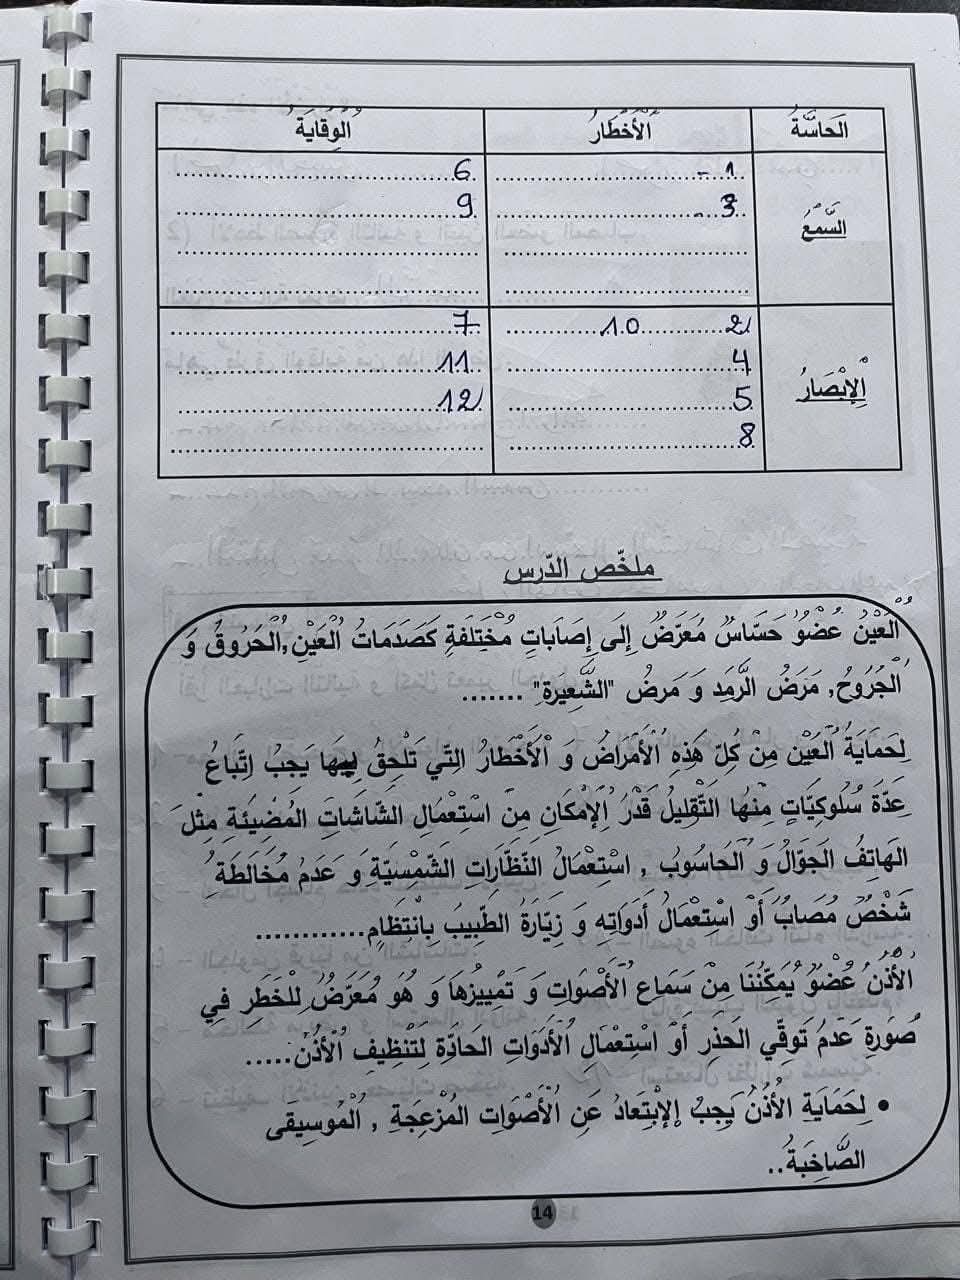 الحَاسَّةُ الْأَخْطَارُ الْوِقَايَةُ
السَّمْعُ
1 - 6
3 - 9
الْإِبْصَارُ
2 10 7
4 11
5 12
8
ملخّص الدّرس
الْعَيْنُ عُضْوُ حَسَّاسٌ مُعَرَّضٌ إِلَى إِصَابَاتٍ مُخْتَلِفَةٍ كَصَدَمَاتُ الْعَيْنِ, الْحَرُوقُ وَ
الْجُرُوحُ, مَرَضُ الرَّمَدِ وَ مَرضُ "الشَّعِيرَةِ" .......
لِحَمَايَةُ الْعَيْنِ مِنْ كُلِّ هَذِهِ الْأَمْرَاضُ وَ الْأَخْطَارُ التِّي تَلْحِقُ بِهَا يَجِبُ اتِّبَاعُ
عِدَّةَ سُلُوكِيَّاتٍ مِنْهَا التَّقْلِيلُ قَدْرُ الْإِمْكَانِ مِنَ اسْتِعْمَالِ الشَّاشَاتِ المُضِيئَةِ مِثْلَ
الهَاتِفُ الجَوَّالُ وَ الْحَاسُوبُ , اسْتِعْمَالُ النَّظَّارَاتِ الشَّمْسِيَّةِ وَ عَدَمُ مُخَالَطَةُ
شَخْصٌ مُصَابٌ أَوْ اسْتِعْمَالُ أَدَوَاتِهِ وَ زِيَّارَةُ الطَّبِيبَ بِانْتِظَامٍ............
الْأُذُنُ عُضْوٌ يُمَكِّنُنَا مِنْ سَمَاعِ الْأَصْوَاتِ وَ تَمْيِيزُهَا وَ هُوَ مُعَرَّضُ لِلْخَطَرِ فِي
صُورَةِ عَدَمُ تَوَقِّي الحَذَرِ أَوْ اسْتِعْمَالِ الْأَدَوَاتِ الحَادَّةِ لِتَنْظِيفِ الْأُذُنْ.....
• لِحَمَايَةِ الأُذُنْ يَجِبُ الْإِبْتِعَادُ عَنِ الْأَصْوَاتِ المُزْعِجَةِ , الْمُوسِيقَى
الصَّاخِبَةُ..
14